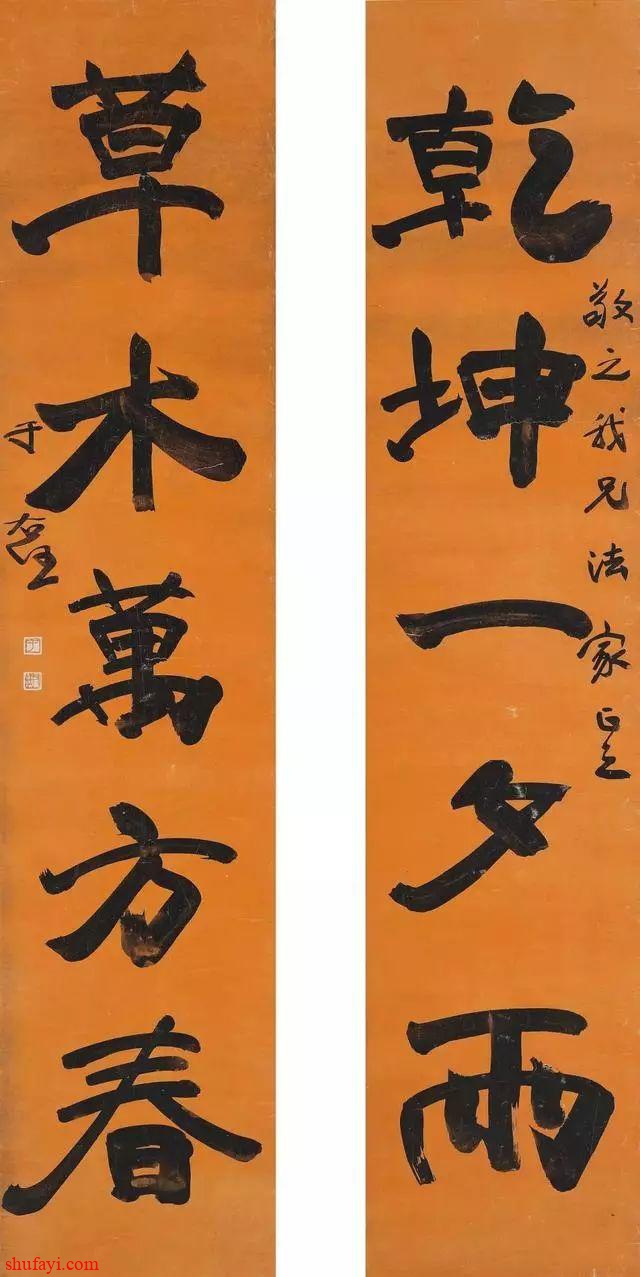 乾坤一夕雨
敬之我兄法家正之
草木萬方春
于右任
shufayi.com